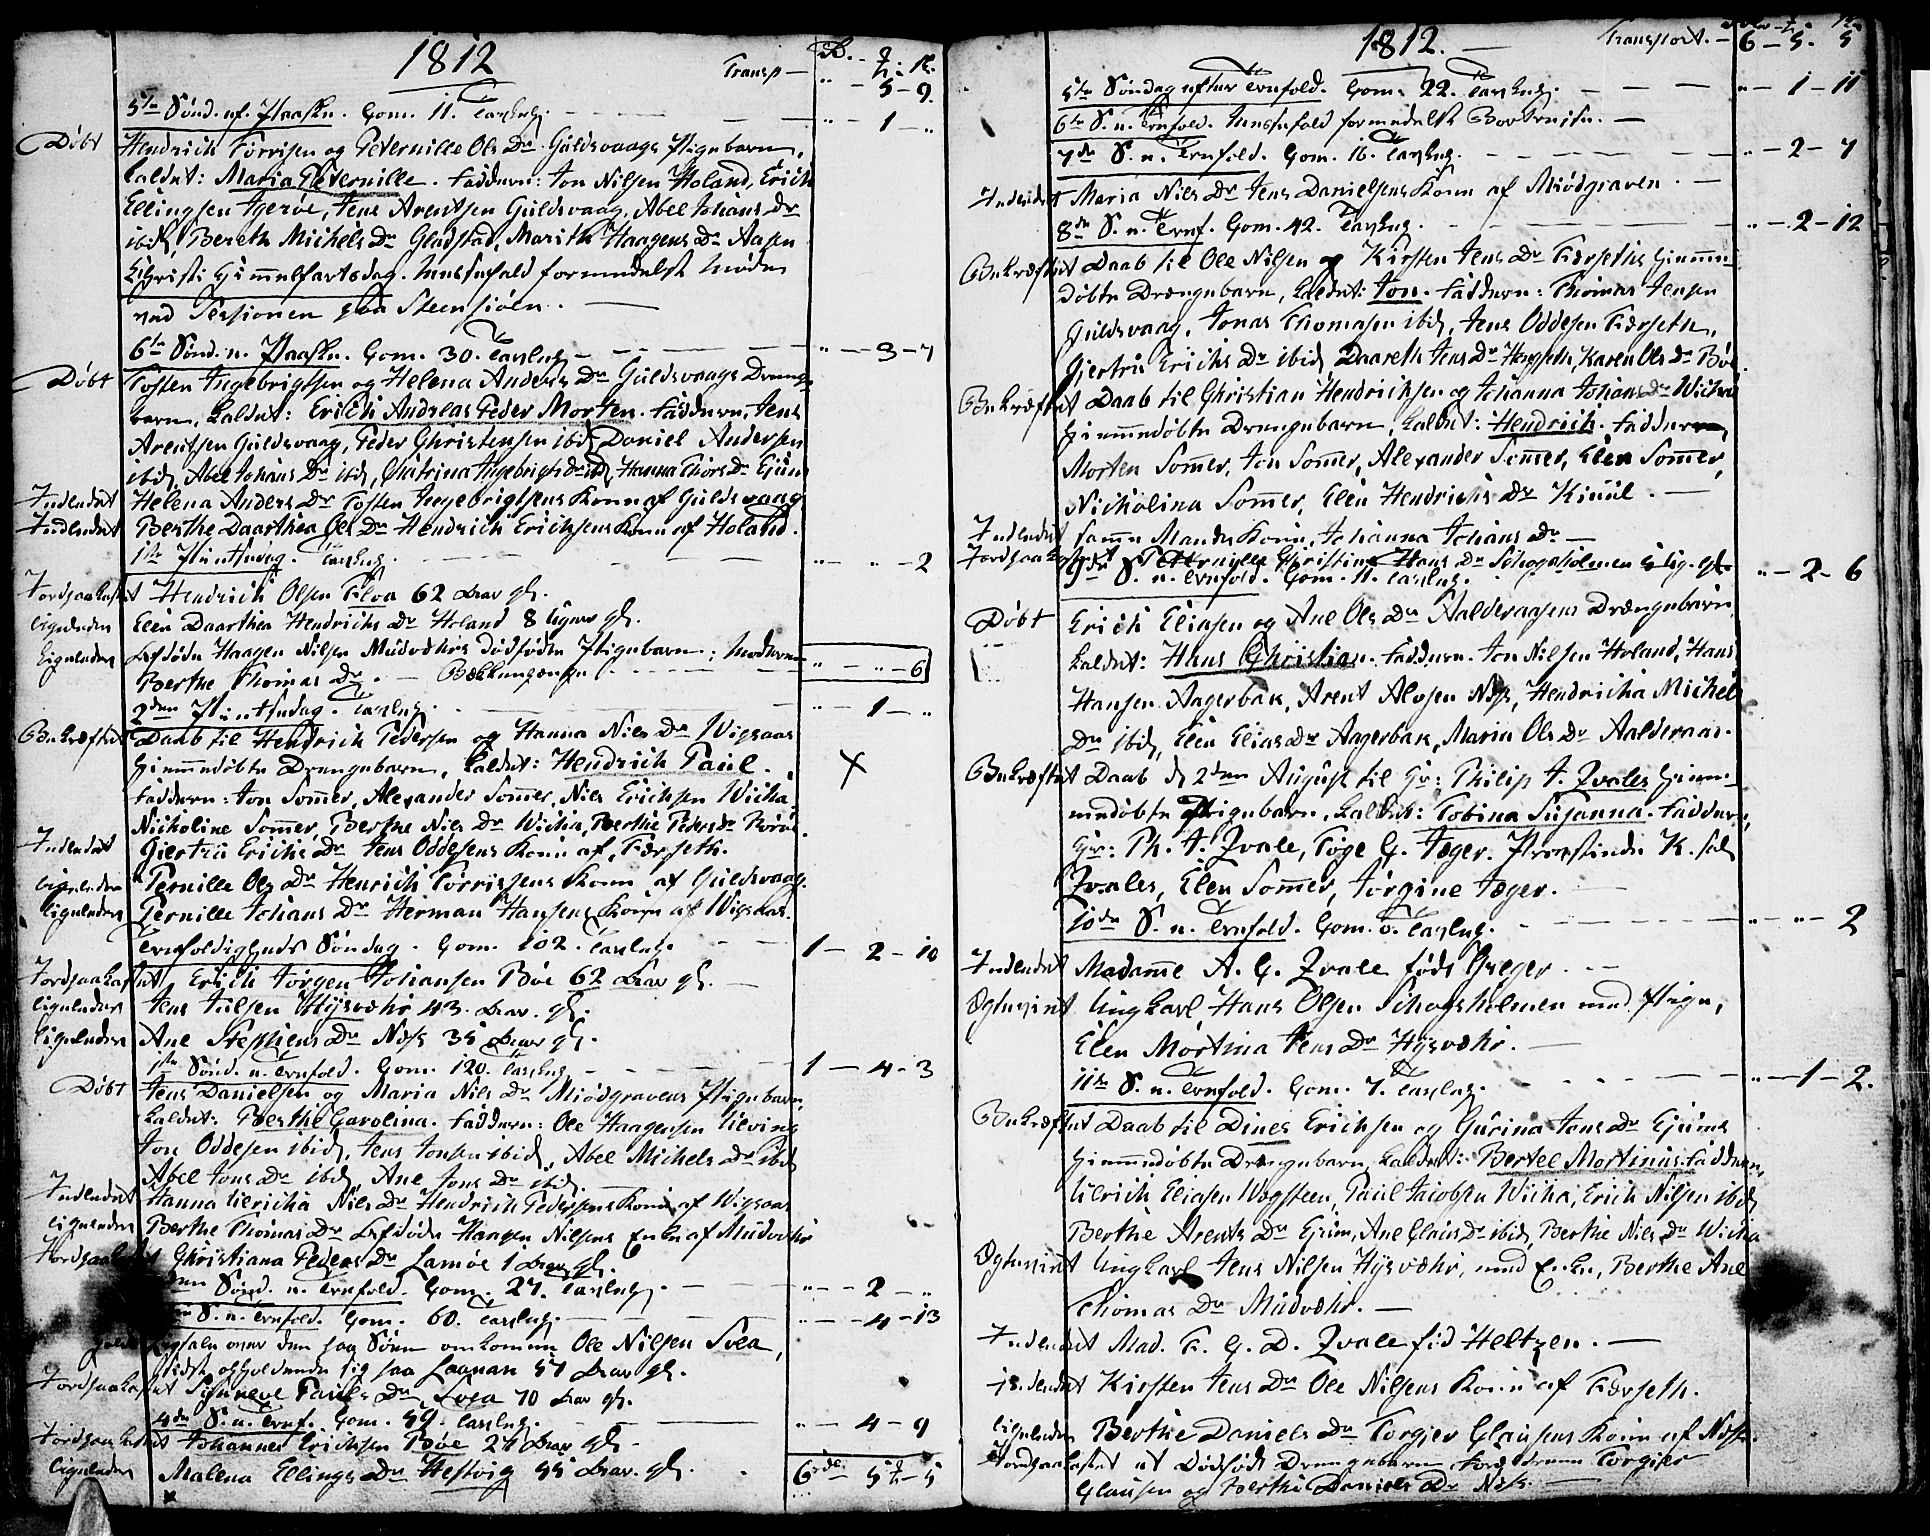 1812
Transp — " — 5 — 9.
5te Sönd. ef. Paaske. Com. 11. Tavleng. — " — 1 — "
Döbt Hendrich Torrisen og Peternille Ols Dr Guldsvaags Pigebarn,
kaldet: Maria Peternille. Faddere: Jon Nilsen Holand, Erich
Ellingsen Igeröe, Jens Arentsen Guldsvaag, Abel Johans Dr
ibid, Bereth Michels Dr Gladstad, Marith Haagens Dr Aasen
Christi Himmelfartsdag. Messefald formedelst Möde
ved Sessionen paa Steensiöen.
6te Sönd. e. Paaske. Com. 30. Tavleng — " — 3 — 7
Döbt Tosten Ingebrigtsen og Helena Anders Dr Guldsvaags Drenge-
barn, kaldet: Erich Andreas Peder Morten. Faddere, Jens
Arentsen Guldsvaag, Peder Christensen ibid, Daniel Andersen
ibid, Abel Johans Dr ibid, Chatrina Ingebrigts Dr ibid, Hanna Thors Dr
Indledet Helena Anders Dr Tosten Ingebrigtsens Kone af Guldsvaag
Indledet Berthe Daarthea Ols Dr Hendrich Erichsens Kone af Holand.
1ste Pintsedag. Tavleng. — " — " — 2
Jordpaakastet Hendrich Olsen Floa 62 Aar gl.
ligeledes Elen Daarthea Hendrichs Dr Holand 8 Uger gl.
Ligeledes Afdöde Haagen Nilsen Mudvæhrs dödfödte Pigebarn; Moderen
Berthe Thomas Dr. — Bekkenpenge — " — " — 6
2den Pintsedag. Tavleng. — " — 1 — "
Bekræftet Daab til Hendrich Pedersen og Hanna Nils Dr Wigsaas
hiemmedöbte Drengebarn, kaldet: Hendrich Paul.
Faddere: Jon Somer, Alexander Somer, Nils Erichsen Wicha,
Nicholine Somer, Berthe Nils Dr Wicha, Berthe Peders Dr
Indledet Giertru Erichs Dr Jens Oddesens Kone af Færseth.
ligeledes Pernille Ols Dr Henrich Torrissens Kone af Guldsvaag.
ligeledes Pernille Johans Dr Herman Hansens Kone af Wigsaas.
Trefoldigheds Söndag. Com. 102. Tavleng. 1 — 2 — 10
Jordpaakastet Erich Jörgen Johansen Böe 62 Aar gl.
ligeledes Jens Julsen Hysvæhr 43 Aar gl.
ligeledes Ane Stephens Dr Næs 35 Aar gl.
1ste Sönd. e. Trefold. Com. 120. Tavleng 1 — 4 — 3
Döbt Jens Danielsen og Maria Nils Dr Miödgravens Pigebarn,
kaldet: Berthe Carolina. Faddere: Ole Haagensen
Jon Oddesen ibid, Jens Jonsen ibid, Abel Michels Dr ibid
Abel Jons Dr ibid, Ane Jons Dr ibid.
Indledet Hanna Ulricha Nils Dr Hendrich Pedersens Kone af Wigsaas
ligeledes Berthe Thomas Dr Afdöde Haagen Nilsens Enke af Mudvæhr
Jordpaakastet Christiana Peders Dr Lamöe 1 Aar gl.
Sönd. e. Trefold. Com. 27. Tavleng. — " — 2 — "
S. e. Trefold. Com. 60. Tavleng. — " — 4 — 13
over den paa Söen omkomne Ole Nilsen Svea,
sidst opholdende sig paa 57 Aar gl.
Jordpaakastet Synneve Pauls Dr Svea 70 Aar gl.
4de S. e. Tref. Com. 59. Tavleng. — " — 4 — 9
Jordpaakastet Johannes Erichsen Böe 27 Aar gl.
ligeledes Malena Ellings Dr Hestvig 55 Aar gl. 6 — 5 — 5
1812.
Transport. — 6 — 5. 5
5te Söndag efter Trefold. Com. 22. Tavleng. — " — 1 — 11
6te S. e. Trefold. Messefald formedelst Bortreise. —
7de S. e. Trefold. Com. 16. Tavleng. — " — 2 — 7
Indledet Maria Nils Dr Jens Danielsens Kone af Miödgraven. —
8de S. e. Tref. Com. 42. Tavleng. — " — 2 — 12
Bekræftet Daab til Ole Nilsen og Kirsten Jens Dr Færseths hiemme-
döbte Drengebarn, kaldet: Jon. Faddere: Thomas Jensen
Guldsvaag, Jonas Thomasen ibid, Jens Oddesen Færseth,
Giertru Erichs Dr ibid, Daareth Jens Dr Karen Ols Dr Böe
Bekræftet Daab til Christian Hendrichsen og Johanna Johans Dr
hiemmedöbte Drengebarn, kaldet: Hendrich. Faddere
Morten Somer, Jon Somer, Alexander Somer, Elen Somer,
Nicholina Somer, Elen Hendrichs Dr —
Indledet samme Mandes Kone, Johanna Johans Dr —
Jordpaakastet Petternille Christine Hans Dr Schogsholmen
9de S. e. Trefold. Com. 11. Tavleng. — " — 2 — 6
Döbt Erich Eliasen og Ane Ols Dr Aalderaasens Drengebarn
kaldet: Hans Christian. Faddere. Jon Nilsen Holand, Hans
Hansen Aagerbak, Arent Alvsen Næs, Hendricha Michels
Dr ibid, Elen Elias Dr Aagerbak, Maria Ols Dr Aalderaas.
Bekræftet Daab d 2den August til Hr: Philip A. Qvales hiem-
medöbte Pigebarn, kaldet: Tobina Susanna. Faddere,
Hr: Ph. A. Qvale, Töge C. Jæger. Provstinde K. sal
Qvales, Elen Somer, Jörgine Jæger. —
10de S. e. Trefold. Com. 0. Tavleng. — " — " — 2
Indledet Madame A. C. Qvale föde Greger. —
Ægteviet Ungkarl Hans Olsen Schogsholmen med Pige,
Elen Mortina Jens Dr Hysvæhr. —
11te S. e. Trefold. Com. 7. Tavleng. — " — 1 — 2.
Bekræftet Daab til Dines Erichsen og Gurina Jons Dr
hiemmedöbte Drengebarn, kaldet: Bertel Mortinus. Faddere,
Ulrich Eliasen Wogsteen, Paul Jacobsen Wicha, Erich Nilsen ibid
Berthe Arents Dr Ane Claus Dr ibid, Berthe Nils Dr Wicha
Ægteviet Ungkarl Jens Nilsen Hysvæhr, med Enke, Berthe Ane
Thomas Dr Mudvæhr. —
Indledet Mad. F. C. D. Qvale föd Heltzen. —
Indledet Kirsten Jens Dr Ole Nilsens Kone af Færseth.
ligeledes Berthe Daniels Dr Torgier Clausens Kone af Næs.
Jordpaakastet et Dödfödt Drengebarn Forældrene Torgier
Clausen og Berthe Daniels Dr Næs.